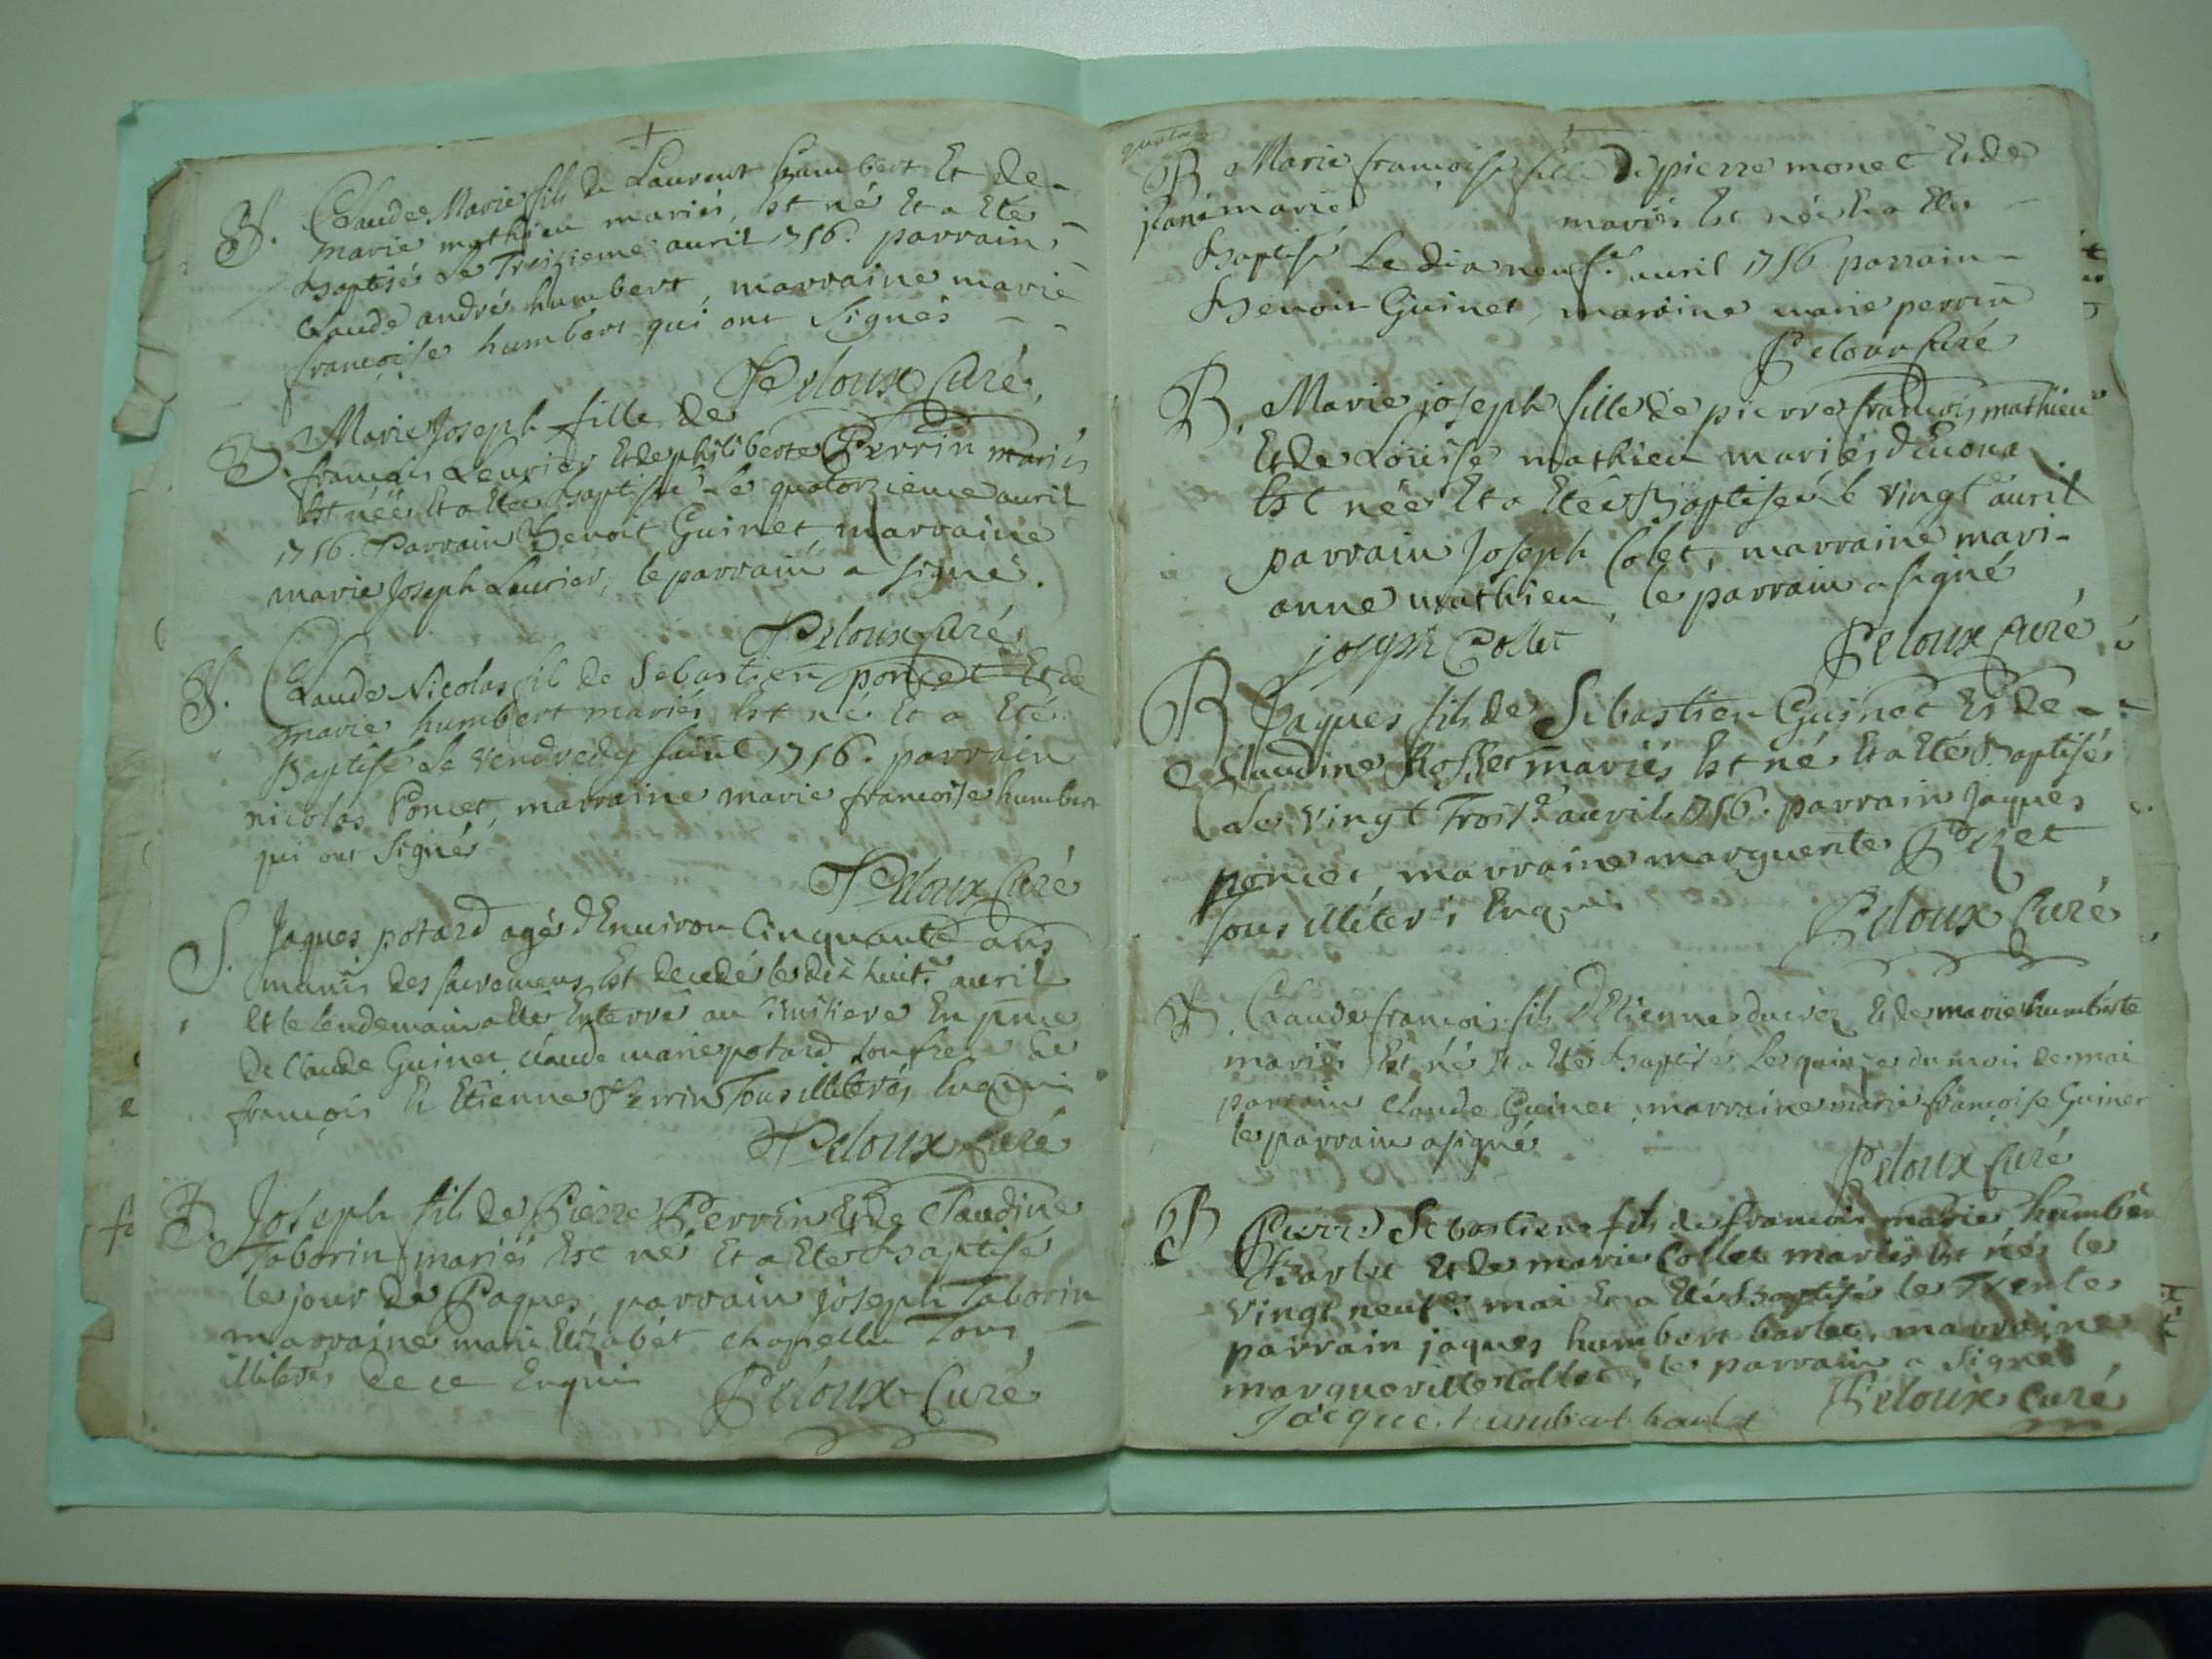 B. Claude Marie fils de Laurent humbert Et de -
marie mathieu mariés, Est né Et a Eté -
Baptisé Le Treizieme avril 1756. parrain -
Claude andré humbert, marraine marie
françoise humbert qui ont Signés - -
Peloux Curé
B. Marie Joseph fille de
françois Leurier Et de philiberte Perrin mariés
Est néé Et a Eté Baptisé Le quatorzieme avril
1756. Parrain Benoit Guinet, marraine
marie Joseph Leurier, le parrain a signé.
Peloux Curé
B. Claude Nicolas fil de Sebastien poncet Et de
marie humbert mariés Est né Et a Eté
Baptisé Le vendredy saint 1756. parrain
nicolas Poncet, marraine marie françoise humbert
qui ont Signés
Peloux Curé
S. Jaques potard agé d'Environ Cinquante ans
munis des sacremens Est decedé le dix huit.e avril
Et le lendemain a Eté Enterré au Cimitiere En pnce
de Claude Guinet, Claude marie potard son frere Et
françois Et Etienne Perrin Tous illiterés Enquis
Peloux Curé
B. Joseph fils de Pierre Perrin Et de Claudine
Taborin mariés Est né Et a Eté Baptisé
le jour de Paques, parrain joseph Taborin
marraine marie Elizabet chapellu Tous
illiterés de ce Enquis
Peloux Curé
B. Marie françoise fille De pierre monet Et de
mariés Est née Et a Eté -
Baptisé Le dix neuf.e avril 1756 parrain -
Benoit Guinet, marraine marie perrin
Peloux Curé
B. Marie joseph fille de pierre françois mathieu
Et de Loüise mathieu mariés d'Euona
Est née Et a Eté Baptiseé le vingt avril
parrain Joseph Colet, marraine mari-
anne mathieu, le parrain a signé
joseph Collet
Peloux Curé
B Jaques fils de Sebastien Guinet Et de -
Claudine Rosset mariés Est né Et a Eté Baptisé
Le vingt Trois.e avril 1756. parrain Jaques
poncet, marraine marguerite Pizet
Tous illiterés Enquis
Peloux Curé
B. Claude françois fils d'Etienne ducrez Et de marie humberte
mariés Est né Et a Eté Baptisé Le quinze du mois de mai
parrain Claude Guinet, marraine marie françoise Guinet
le parrain a signé
Peloux Curé
B Pierre Sebastien fils de françois marie humbert
Barlet Et de marie Collet mariés Est né le
vingt neuf.e mai Et a Eté Baptisé le Trente
parrain jaques humbert barlet, marraine
marguerite Collet, le parrain a Signé
Jacque humbert barlet
Peloux Curé